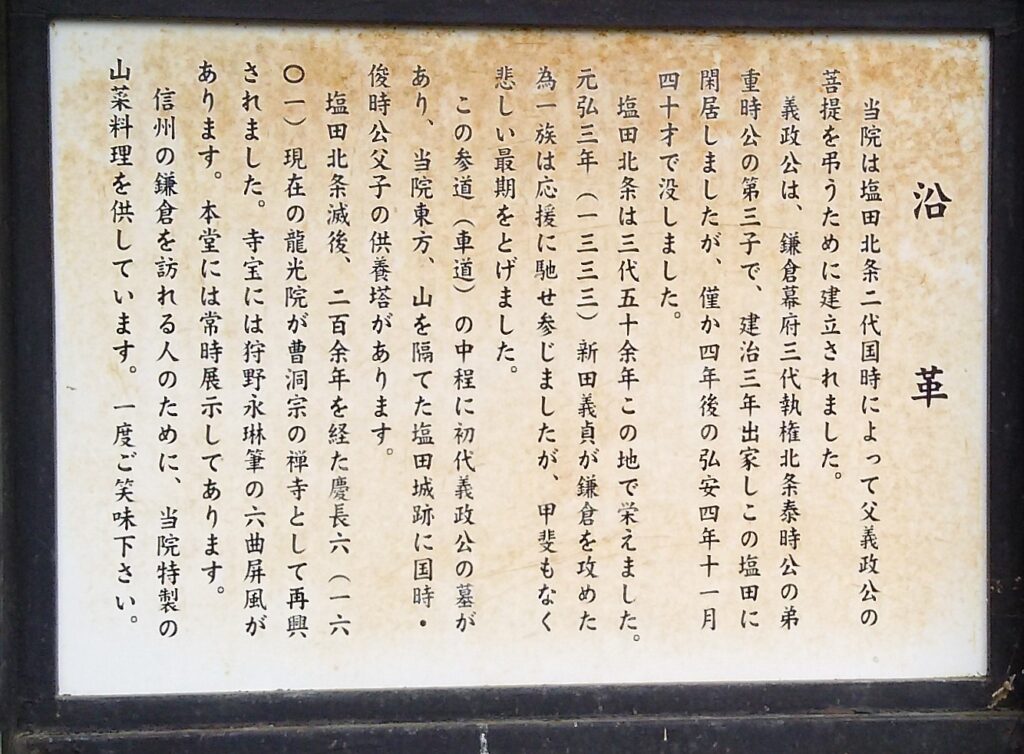 沿革
当院は塩田北条二代国時によって父義政公の
菩提を弔うために建立されました。
義政公は、鎌倉幕府三代執権北条泰時公の弟
重時公の第三子で、建治三年出家しこの塩田に
閑居しましたが、僅か四年後の弘安四年十一月
四十才で没しました。
塩田北条は三代五十余年この地で栄えました。
元弘三年(一三三三)新田義貞が鎌倉を攻めた
為一族は応援に馳せ参じましたが、甲斐もなく
悲しい最期をとげました。
この参道(車道)の中程に初代義政公の墓が
あり、当院東方、山を隔てた塩田城跡に国時・
俊時公父子の供養塔があります。
塩田北条滅後、二百余年を経た慶長六(一六
〇一)現在の龍光院が曹洞宗の禅寺として再興
されました。寺宝には狩野永琳筆の六曲屏風が
あります。本堂には常時展示してあります。
信州の鎌倉を訪れる人のために、当院特製の
山菜料理を供しています。一度ご笑味下さい。